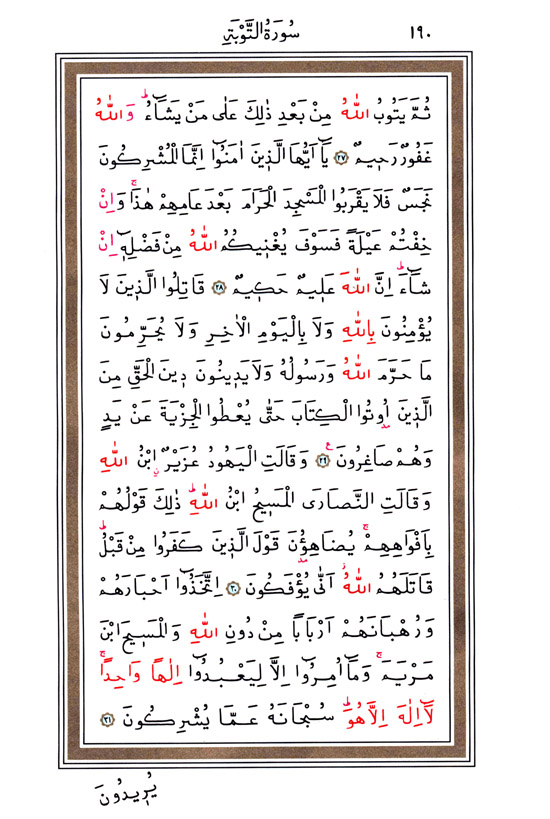 سُورَةُ التَّوْبَةِ ١٩٠
ثُمَّ يَتُوبُ اللّٰهُ مِنْ بَعْدِ ذٰلِكَ عَلٰى مَنْ يَشَٓاءُۜ وَاللّٰهُ
غَفُورٌ رَح۪يمٌ ﴿٢٧﴾ يَٓا اَيُّهَا الَّذ۪ينَ اٰمَنُٓوا اِنَّمَا الْمُشْرِكُونَ
نَجَسٌ فَلَا يَقْرَبُوا الْمَسْجِدَ الْحَرَامَ بَعْدَ عَامِهِمْ هٰذَاۚ وَاِنْ
خِفْتُمْ عَيْلَةً فَسَوْفَ يُغْن۪يكُمُ اللّٰهُ مِنْ فَضْلِه۪ٓ اِنْ
شَٓاءَۜ اِنَّ اللّٰهَ عَل۪يمٌ حَك۪يمٌ ﴿٢٨﴾ قَاتِلُوا الَّذ۪ينَ لَا
يُؤْمِنُونَ بِاللّٰهِ وَلَا بِالْيَوْمِ الْاٰخِرِ وَلَا يُحَرِّمُونَ
مَا حَرَّمَ اللّٰهُ وَرَسُولُهُ وَلَا يَد۪ينُونَ د۪ينَ الْحَقِّ مِنَ
الَّذ۪ينَ اُو۫تُوا الْكِتَابَ حَتّٰى يُعْطُوا الْجِزْيَةَ عَنْ يَدٍ
وَهُمْ صَاغِرُونَ۟ ﴿٢٩﴾ وَقَالَتِ الْيَهُودُ عُزَيْرٌۨ ابْنُ اللّٰهِ
وَقَالَتِ النَّصَارَى الْمَس۪يحُ ابْنُ اللّٰهِۜ ذٰلِكَ قَوْلُهُمْ
بِاَفْوَاهِهِمْۚ يُضَاهِؤُ۫نَ قَوْلَ الَّذ۪ينَ كَفَرُوا مِنْ قَبْلُۜ
قَاتَلَهُمُ اللّٰهُۘ اَنّٰى يُؤْفَكُونَ ﴿٣٠﴾ اِتَّخَذُٓوا اَحْبَارَهُمْ
وَرُهْبَانَهُمْ اَرْبَاباً مِنْ دُونِ اللّٰهِ وَالْمَس۪يحَ ابْنَ
مَرْيَمَۚ وَمَٓا اُمِرُٓوا اِلَّا لِيَعْبُدُٓوا اِلٰهاً وَاحِداًۚ
لَٓا اِلٰهَ اِلَّا هُوَۜ سُبْحَانَهُ عَمَّا يُشْرِكُونَ ﴿٣١﴾
يُر۪يدُونَ